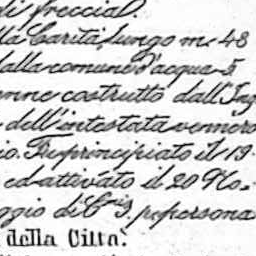 di frecciai.
lla Carità, lungo m. 48
dalla comune d'acqua 5
enne costrutto dall'Ing
dell'intestata vennero
io. Fu principiato il 19
ed attivato il 20 No.
ggio di C.mi 5. per persona
della Città.